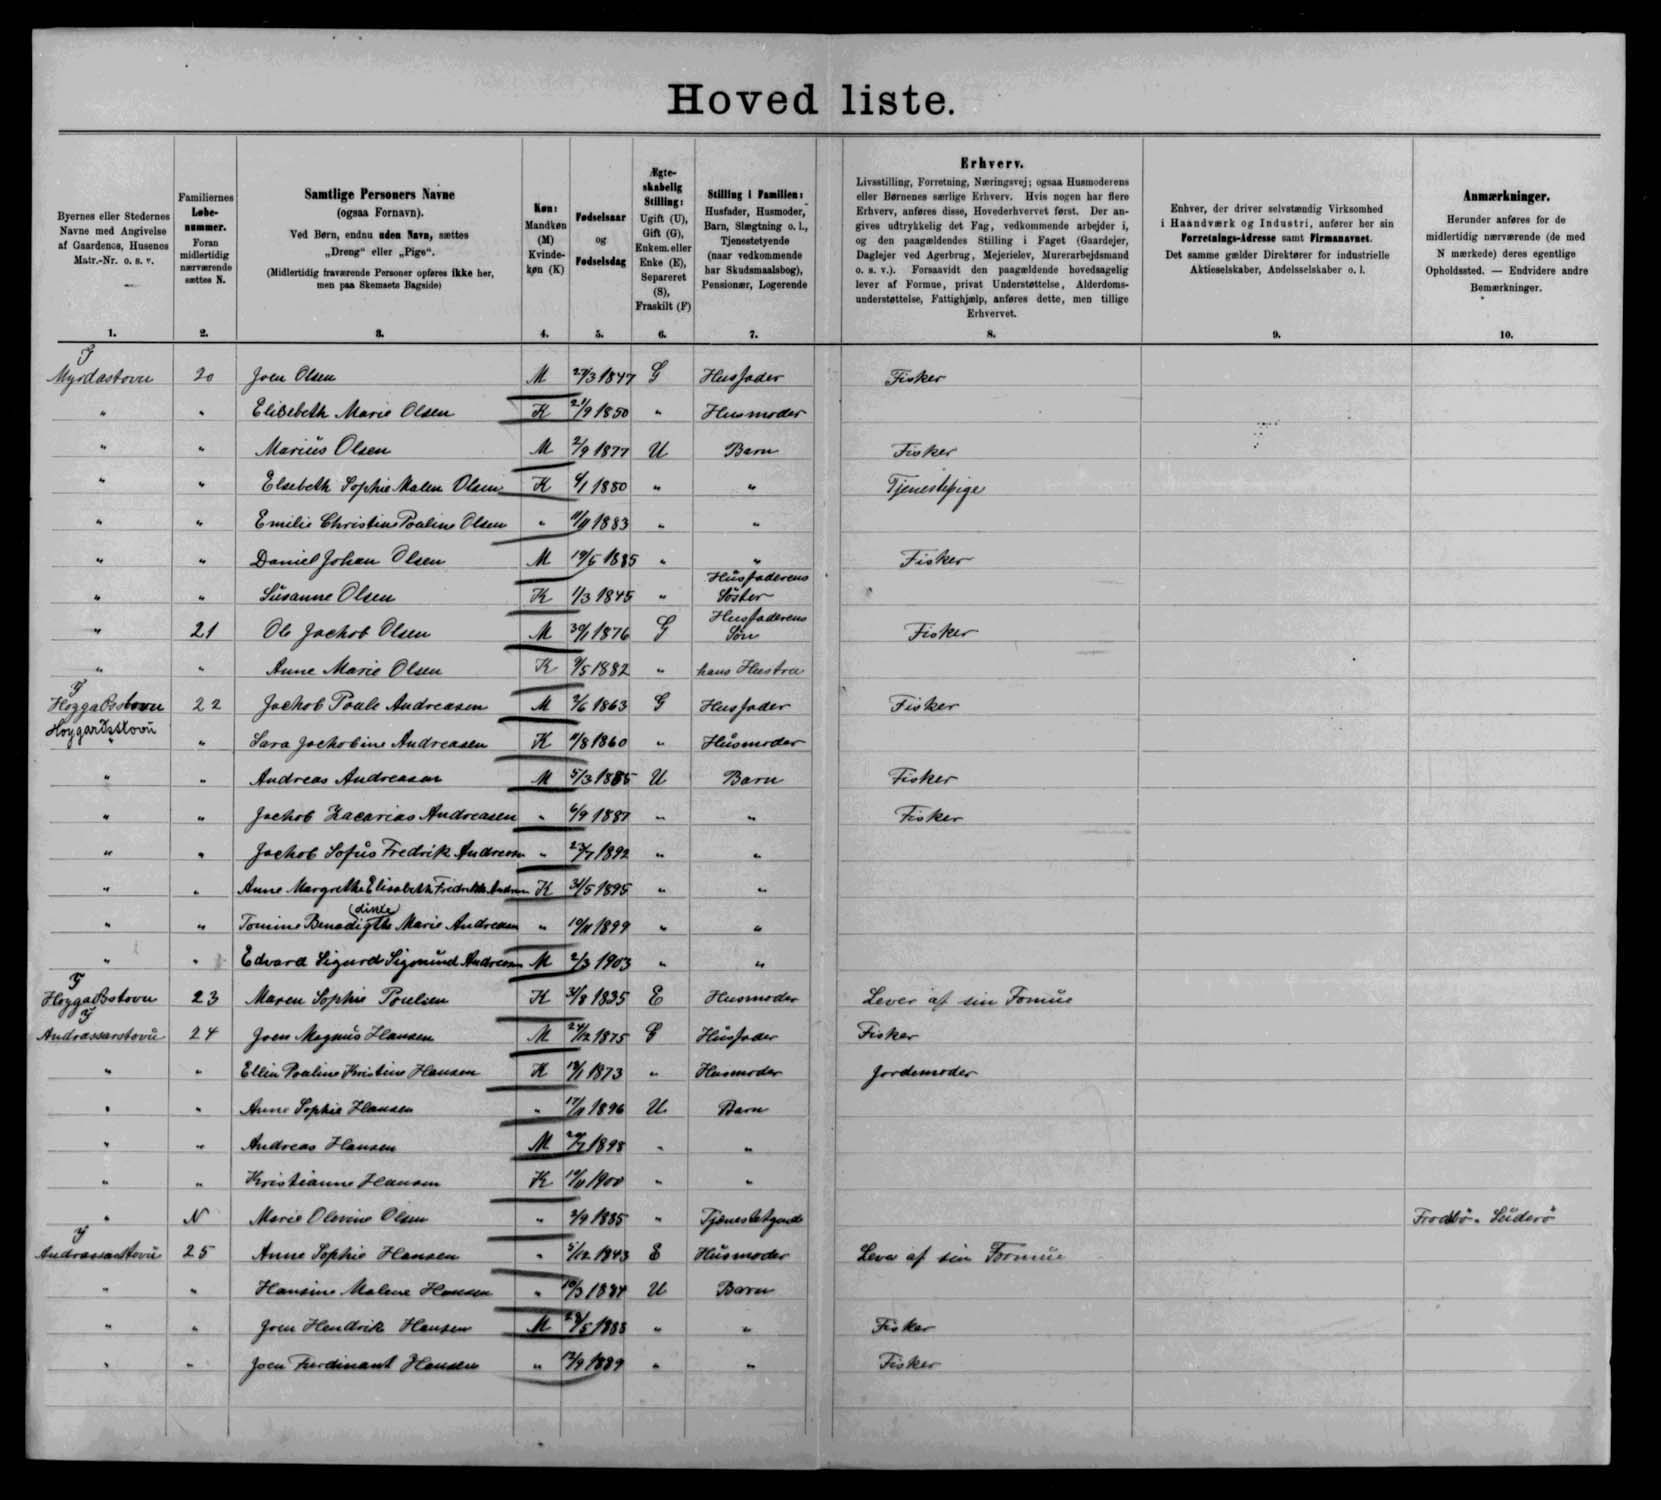 Hovedliste.
Byernes eller Stedernes Navne med Angivelse af Gaardenes, Husenes Matr.-Nr. o. s. v.
Familiernes Løbenummer. Foran midlertidig nærværende sættes N.
Samtlige Personers Navne (ogsaa Fornavn). Ved Børn, endnu uden Navn, sættes „Dreng" eller „Pige". (Midlertidig fraværende Personer opføres ikke her, men paa Skemaets Bagside)
Køn: Mandkøn (M) Kvindekøn (K)
Fødselsaar og Fødselsdag
Ægteskabelig Stilling: Ugift (U), Gift (G), Enkem. eller Enke (E), Separeret (S), Fraskilt (F)
Stilling i Familien: Husfader, Husmoder, Barn, Slægtning o. l., Tjenestetyende (naar vedkommende har Skudsmaalsbog), Pensionær, Logerende
Erhverv. Livsstilling, Forretning, Næringsvej; ogsaa Husmoderens eller Børnenes særlige Erhverv. Hvis nogen har flere Erhverv, anføres disse, Hovederhvervet først. Der angives udtrykkelig det Fag, vedkommende arbejder i, og den paagældendes Stilling i Faget (Gaardejer, Daglejer ved Agerbrug, Mejerielev, Murerarbejdsmand o. s. v.). Forsaavidt den paagældende hovedsagelig lever af Formue, privat Understøttelse, Alderdomsunderstøttelse, Fattighjælp, anføres dette, men tillige Erhvervet.
Enhver, der driver selvstændig Virksomhed i Haandværk og Industri, anfører her sin Forretnings-Adresse samt Firmanavnet. Det samme gælder Direktører for industrielle Aktieselskaber, Andelsselskaber o. l.
Anmærkninger. Herunder anføres for de midlertidig nærværende (de med N mærkede) deres egentlige Opholdssted. — Endvidere andre Bemærkninger.
1. 2. 3. 4. 5. 6. 7. 8. 9. 10.
I
Myrdastovu 20 Joen Olsen M 27/3 1847 G Husfader Fisker
" " Elisebeth Marie Olsen K 21/9 1850 " Husmoder
" " Marius Olsen M 2/9 1877 U Barn Fisker
" " Elsebeth Sophie Malen Olsen K 6/1 1880 " " Tjenestepige
" " Emilie Christine Pouline Olsen " 11/11 1883 " "
" " Daniel Johan Olsen M 19/5 1885 " " Fisker
" " Susanne Olsen K 1/3 1845 " Husfaderens Søster
" 21 Ole Jachob Olsen M 30/1 1876 G Husfaderens Søn Fisker
" " Anne Marie Olsen K 9/5 1882 " hans Hustru
I
Hoggastovu 22 Jachob Poule Andreasen M 2/6 1863 G Husfader Fisker
Hoygardsstovu
" Sara Jachobine Andreasen K 11/8 1860 " Husmoder
" " Andreas Andreasen M 5/3 1885 U Barn Fisker
" " Jachob Zacarias Andreasen " 6/9 1887 " " Fisker
" " Jachob Sofus Fredrik Andreasen " 23/7 1892 " "
" " Anne Margrethe Elisabeth K 31/5 1895 " "
(dikte)
" " Tomine Benedigthe Marie Andreasen " 10/11 1899 " "
" " Edvard Sigurd Sigmund Andreasen M 2/3 1903 " "
I
Hoggastovu 23 Maren Sophie Poulsen K 31/8 1835 E Husmoder Lever af sin Fomue
I
Andrassarstovu 24 Joen Magnus Hansen M 24/12 1875 G Husfader Fisker
" " Ellin Pouline Kristine Hansen K 19/1 1873 " Husmoder Jordemoder
" " Anne Sophie Hansen " 17/11 1896 U Barn
" " Andreas Hansen M 20/7 1898 " "
" " Kristianne Hansen K 10/11 1900 " "
" N Marie Olevine Olsen " 2/9 1885 " Tjenestetyende Frodbø. Suderø
I
Andrassarstovu 25 Anne Sophie Hansen " 5/12 1843 E Husmoder Lever af sin Formue
" " Hansine Malene Hansen " 10/3 1884 U Barn
" " Joen Hendrik Hansen M 28/5 1888 " " Fisker
" " Joen Ferdinant Hansen " 12/9 1889 " " Fisker